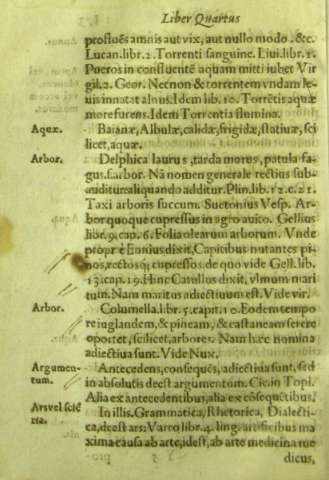 Liber Quartus
profluēs amnis aut vix, aut nullo modo. &c.
Lucan. libr. 2. Torrenti sanguine. Liui. libr. 1.
Pueros in confluentē aquam mitti iubet Vir
gil. 2. Geor. Necnon & torrentem vndam le-
uis innatat alnus. Idem lib. 10. Torrētis aquæ
more furens. Idem Torrentia flumina.
Aquæ. Baianæ, Albulæ, calidæ, frigidæ, statiuæ, sci
licet, aquæ.
Arbor. Delphica laurus, tarda morus, patula fa-
gus. s. arbor. Nā nomen generale rectius sub-
auditur: aliquando additur. Plin. lib. 12. c. 21.
Taxi arboris succum. Suetonius Vesp. Ar-
bor quoque cupressus in agro auito. Gellius
libr. 9. cap. 6. Folia olearum arborum. Vnde
propriè Ennius dixit, Capitibus nutantes pi-
nos, rectosq; cupressos. de quo vide Gell. lib.
13. cap. 19. Hinc Catullus dixit, vlmum mari
tum. Nam maritus adiectiuum est. Vide vir.
Arbor. Columella. libr. 5. capit. 10. Eodem tempo
re iuglandem, & pineam, & castaneam serere
oportet, scilicet, arbores. Nam hæc nomina
adiectiua sunt. Vide Nux.
Argumen-
tum. Antecedens, consequēs, adiectiua sunt, sed
in absolutis deest argumentum. Cic. in Topi.
Alia ex antecedentibus, alia ex cōsequētibus.
Ars vel sciē
tia. In illis. Grammatica, Rhetorica, Dialecti-
ca, deest ars: Varro libr. 4. ling. artificibus ma
xima causa ab arte, idest, ab arte medicina me
dicus,